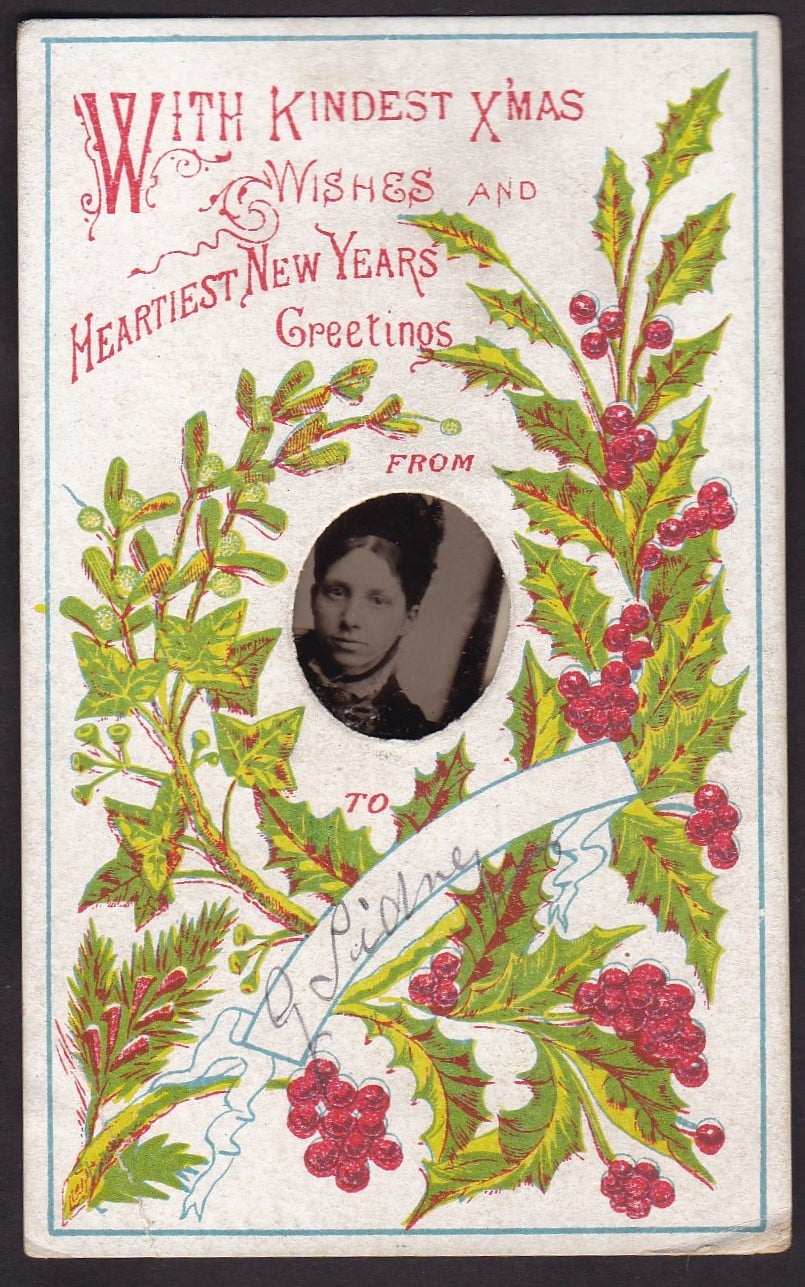 WITH KINDEST X'MAS
WISHES AND
HEARTIEST NEW YEARS
Greetings
FROM
TO
G Sidney